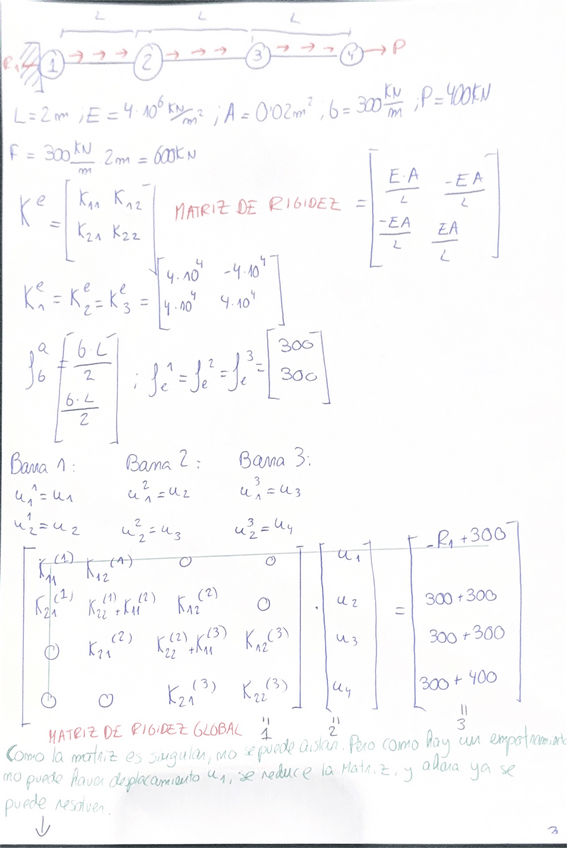 L L L
R₁ 1 → → → → 2 → → → → 3 → → → → 4 → P
L = 2m , E = 4·10⁶ KN/m² ; A = 0'02m² , b = 300 KN/m ; P = 400KN
F = 300 KN/m 2m = 600KN
Kᵉ = [K₁₁ K₁₂ K₂₁ K₂₂] MATRIZ DE RIGIDEZ = [E·A/L -EA/L -EA/L EA/L]
K₁ᵉ = K₂ᵉ = K₃ᵉ = [4·10⁴ -4·10⁴ 4·10⁴ 4·10⁴]
f_b^a = [b·L/2 b·L/2] ; f_e¹ = f_e² = f_e³ = [300 300]
Barra 1: Barra 2: Barra 3:
u₁¹ = u₁ u₁² = u₂ u₁³ = u₃
u₂¹ = u₂ u₂² = u₃ u₂³ = u₄
K₁₁⁽¹⁾ K₁₂⁽¹⁾ 0 0 u₁ -R₁ + 300
K₂₁⁽¹⁾ K₂₂⁽¹⁾ + K₁₁⁽²⁾ K₁₂⁽²⁾ 0 · u₂ = 300 + 300
0 K₂₁⁽²⁾ K₂₂⁽²⁾ + K₁₁⁽³⁾ K₁₂⁽³⁾ u₃ 300 + 300
0 0 K₂₁⁽³⁾ K₂₂⁽³⁾ u₄ 300 + 400
MATRIZ DE RIGIDEZ GLOBAL = 1 = 2 = 3
Como la matriz es singular, no se puede aislar. Pero como hay un empotramiento
no puede haver desplacamiento u₁, se reduce la Matriz, y ahora ya se
puede resolver.
↓